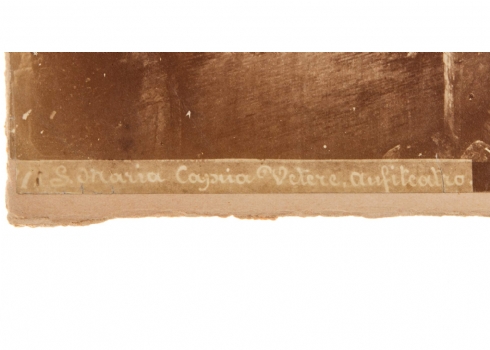 S. Maria Capua Vetere. Anfiteatro